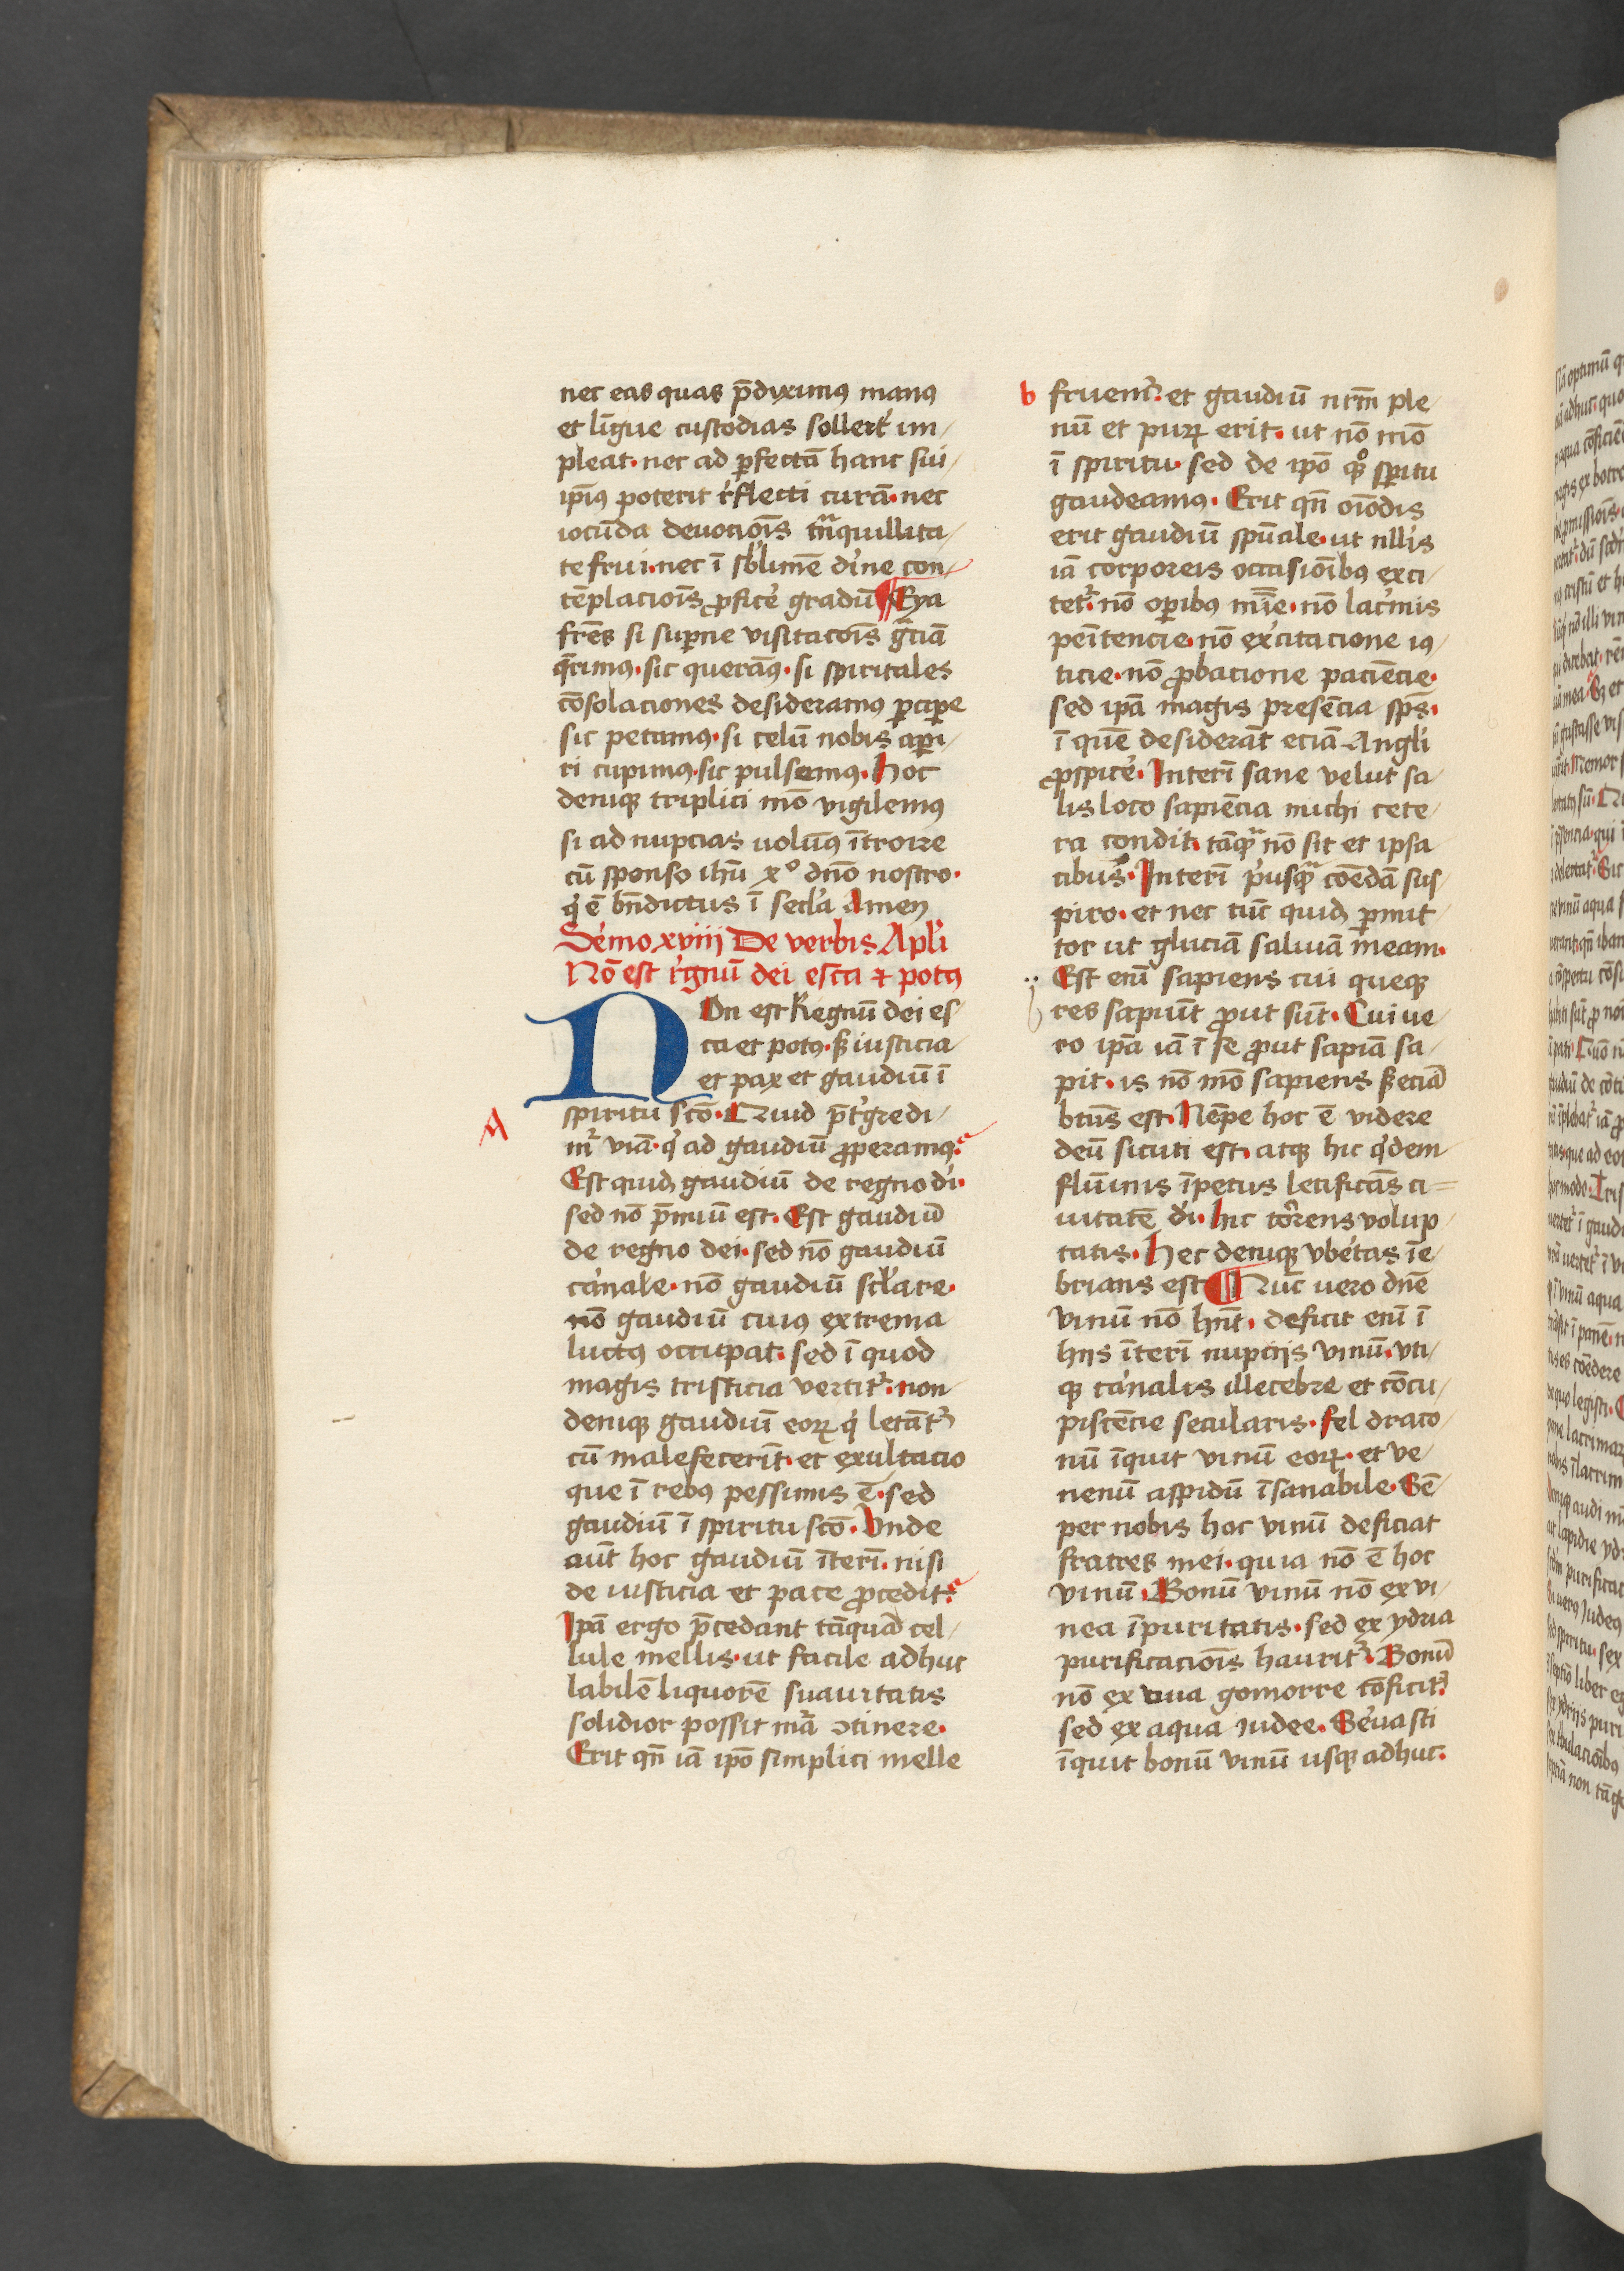 nec eas quas p̄diximꝰ manꝰ
et līgue custodias sollert̉ im/
pleat. nec ad ꝑfectā hanc sui/
ipīꝰ poterit r̉flecti curā. nec
iocūda deuociōis tͣnquillita/
te frui. nec ī sb̉limē dīne con/
tēplaciōis ꝓficẻ gradū ¶ Eya
frēs si suꝑne visitacōis gͣciā
q̄rimꝰ. sic querāꝰ. si spiritales
cōsolaciones desideramꝰ ꝑciꝑe
sic petamꝰ. si celū nobis aꝑi/
ri cupimꝰ. sic pulsemꝰ. Hoc
deniqꝫ triplici mō vigilemꝰ
si ad nupcias uolūꝰ ītroire
cū sponso ihū xº dnō nostro.
q̉ ē bn̄dictus ī secl̉a Amen
Se̓mo xviij De verbis Apl̓i
Nō est r̓gnū dei esca ⁊ potꝰ
NOn est Regnū dei es/
ca et potꝰ. sꝫ iusticia
et pax et gaudiū ī
spiritu scō. Quid p̄t̓gredi/
A
mr̉ viā. q̉ ad gaudiū ꝓperamꝰ?
Est quidꝫ gaudiū de regno di̓.
sed nō p̄miū est. Est gaudiū
de regno dei. sed nō gaudiū
ca̓nale. nō gaudiū scl̓are.
nō gaudiū cuiꝰ extrema
luctꝰ occupat. sed ī quod
magis tristicia vertitr̉. non
deniqꝫ gaudiū eoꝝ q̉ letāt̓r
cū malefecerīt. et exultacio
que ī rebꝰ pessimis ē. sed
gaudiū ī spiritu scō. Unde
aūt hoc gaudiū īterī. nisi
de iusticia et pace ꝓcedit?
Ipā ergo p̄cedant tāquā cel/
lule mellis. ut facile adhuc
labilē liquorē suauitatis
solidior possit mͣā ↄtinere.
Erit qn̄ iā ipō simplici melle
b
fruemr̉. et gaudiū nrm̄ ple/
nū et puꝝ erit. ut nō mō
ī spiritu. sed de ipō qͦꝫ spūitu
gaudeamꝰ. Erit qn̄ oīodis
erit gaudiū spūale. ut nll̓is
iā corporeis occasiōibꝰ exci/
tetr̉. nō oꝑibꝰ mīe. nō lac̓mis
peītencie. nō exe̓citacione iꝰ/
ticie. nō ꝓbacione paciēcie.
sed ipā magis presēcia spс̄.
ī quē desiderāt eciā Angl̓i
ꝓspice̓. Interī sane velut sa/
lis loco sapiēcia michi cete/
ra condit. tāqͣꝫ nō sit et ipsa
cibus. Interī p̓usqͣꝫ coēdā sus/
piro. et nec tūc quidꝫ ꝑmit/
tor ut gluciā saliuā meam.
Est enī sapiens cui queqꝫ
res sapiūt ꝓut sūt. Cui ue/
ro ipā iā ī se ꝓut sapiā sa/
pit. is nō mō sapiens sꝫ eciā
btūs est. Nēpe hoc ē videre
deū sicuti est. atqꝫ hic q̓dem
flūinis īpetus letificās ci=
uitatē di̓. hic tōrens volup/
tatis. Hec deniqꝫ vbe̓tas īe/
brians est ¶ Nūc uero dnē
vinū nō hn̄t. deficit enī ī
hijs īterī nupcijs vinū. vti/
qꝫ ca̓nalis illecebre et cōcu/
piscēcie secularis. fel draco/
nū īquit vinū eoꝝ. et ve/
nenū aspidū īsanabile. Sē/
per nobis hoc vinū deficiat
fratres mei. quia nō ē hoc
vinū. Bonū vinū nō ex vi/
nea īpuritatis. sed ex ydria
purificaciōis hauritr̉. Bonū
nō ex uua gomorre cōficitr̉.
sed ex aqua iudee. Se̓uasti
īquit bonū vinū usqꝫ adhuc.